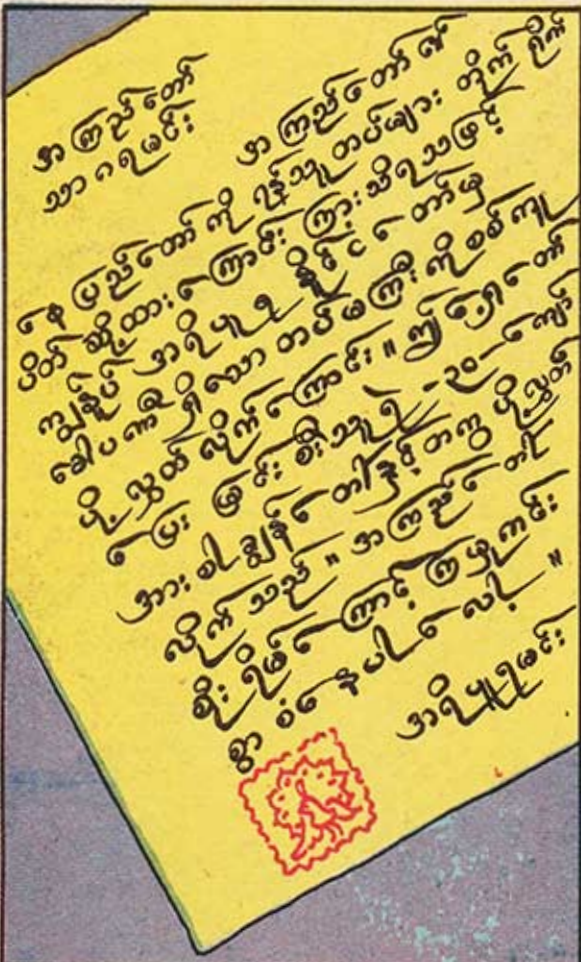 အကြည်တော်
သာဂရမင်း
အကြည်တော်၏
နေပြည်တော်ကို ရန်သူတပ်များ တိုက်ခိုက်
ပိတ်ဆို့ထားကြောင်းကြားသိရသဖြင့်
ကျွန်ုပ် အရိပူရ နိုင်ငံတော်မှ
တပ်မကြီးကို စစ်ကူ
ပို့လွှတ်လိုက်ကြောင်း။ ဤရွှေတော်
ပြေး မြင်းစီးသူရဲ -၂၀- ကျော်
အား စါချွန်တော်နှင့်တကွ ပို့လွှတ်
လိုက်သည်။ အကြည်တော်
စိုးရိမ်ကြောင့်ကြမှုကင်း
စွာ စံနေပါလေလော့။
အရိပူရမင်း